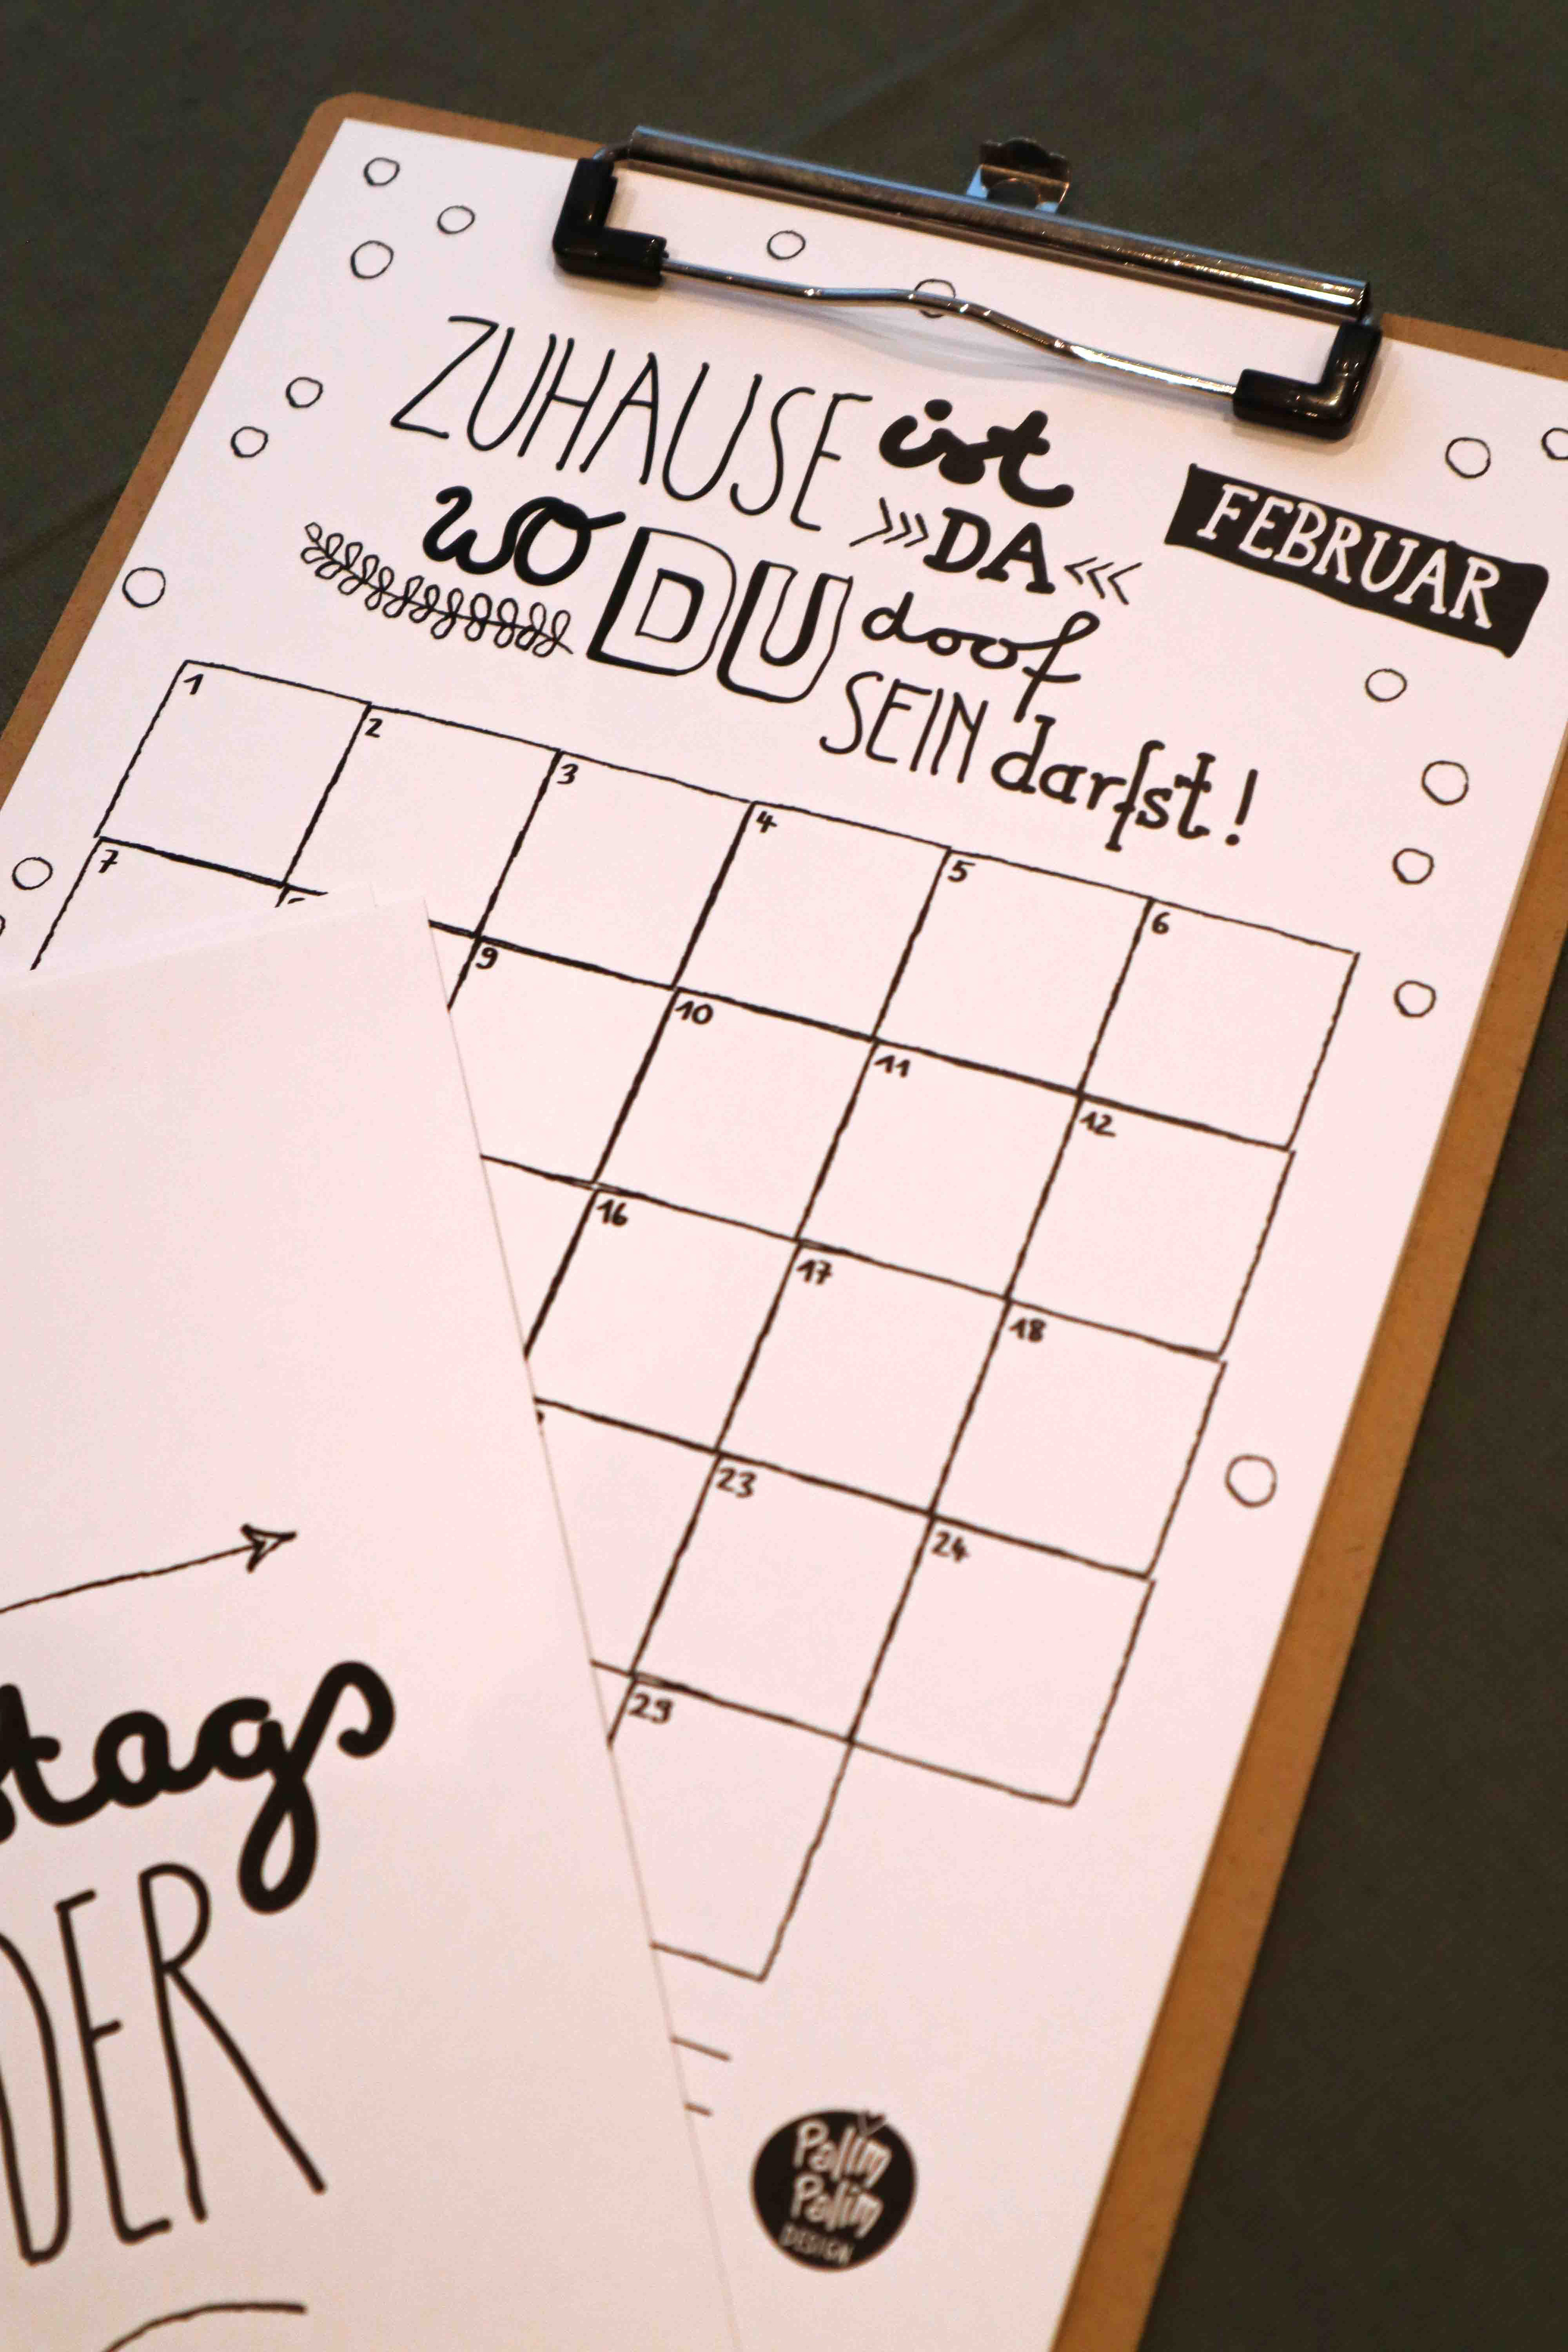 ZUHAUSE ist
»»DA«« FEBRUAR
wo DU doof
SEIN darfst!
1 2 3 4 5 6
7 9 10 11 12
16 17 18
23 24
29
tags
DER
Palim
Palim
DESIGN